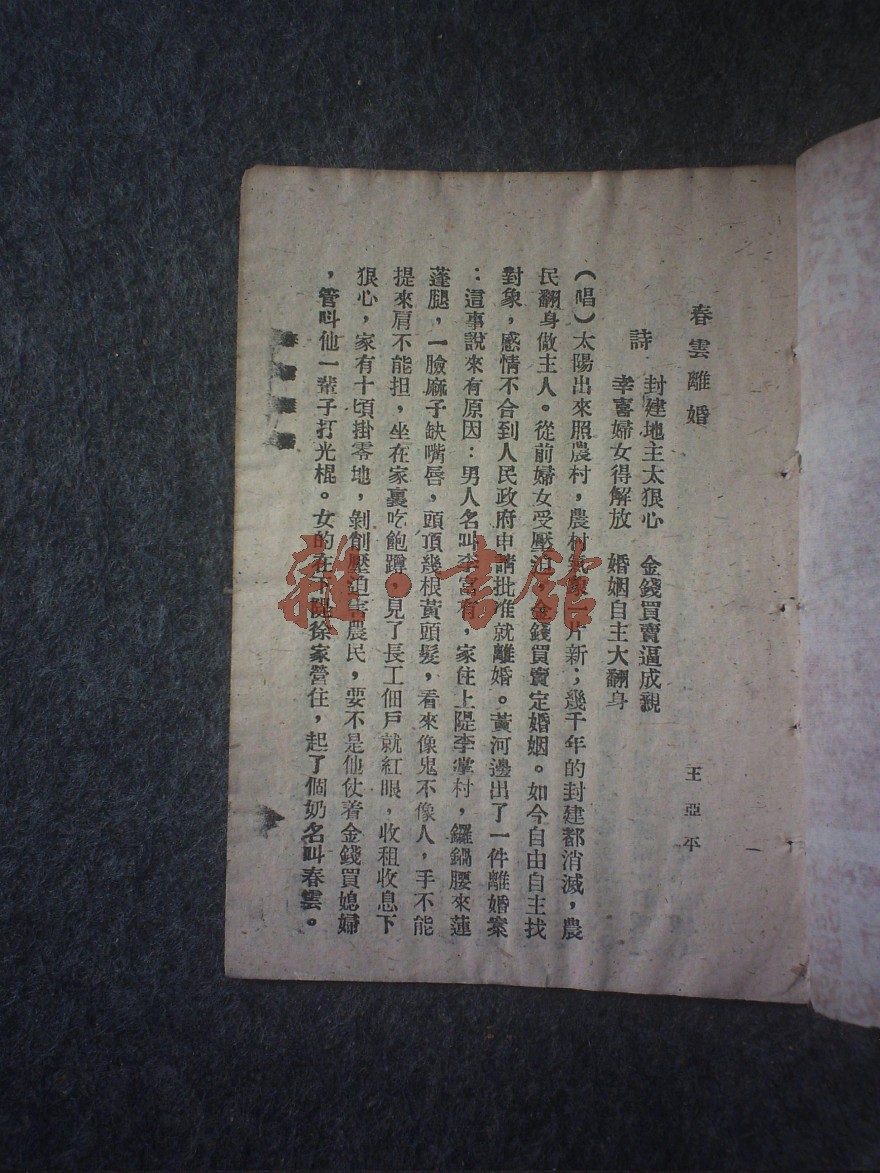 春雲離婚
王亞平
詩　封建地主太狠心　金錢買賣逼成親
幸喜婦女得解放　婚姻自主大翻身
（唱）太陽出來照農村，農村氣象一片新；幾千年的封建都消滅，農
民翻身做主人。從前婦女受壓迫，金錢買賣定婚姻。如今自由自主找
對象，感情不合到人民政府申請批准就離婚。黃河邊出了一件離婚案
：這事說來有原因：男人名叫李富有，家住上隄李掌村，鑼鍋腰來蓮
蓬腿，一臉麻子缺嘴唇，頭頂幾根黃頭髮，看來像鬼不像人，手不能
提來肩不能担，坐在家裏吃飽蹲，見了長工佃戶就紅眼，收租收息下
狠心，家有十頃掛零地，剝削壓迫害農民，要不是他仗着金錢買媳婦
，管叫他一輩子打光棍。女的在下隄徐家營住，起了個奶名叫春雲。
春雲離婚
雜·書館